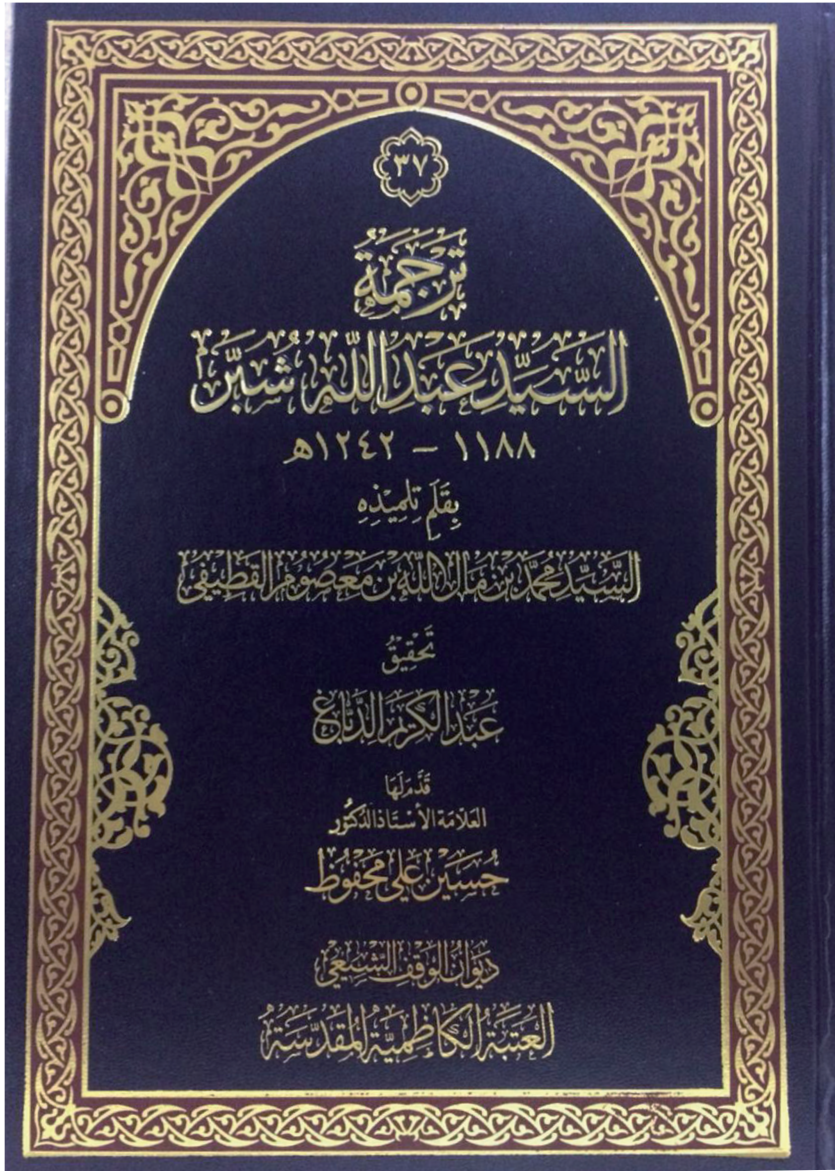 ٣٧
تَرْجَمَةُ
السَّيِّدِ عَبْدِ اللّٰهِ شُبَّر
١١٨٨ - ١٢٤٢هـ
بِقَلَمِ تِلْمِيْذِهِ
السَّيِّدِ مُحَمَّد بْن مَال اللّٰه بْن مَعْصُوم القَطِيفِي
تَحْقِيْقُ
عَبْد الكَرِيْم الدَّبَّاغ
قَدَّمَ لَهَا
العَلَّامَة الأُسْتَاذ الدُّكْتُوْر
حُسَيْن عَلِي مَحْفُوْظ
دِيْوَانُ الوَقْفِ الشِّيْعِي
العَتَبَةُ الكَاظِمِيَّةُ المُقَدَّسَةُ